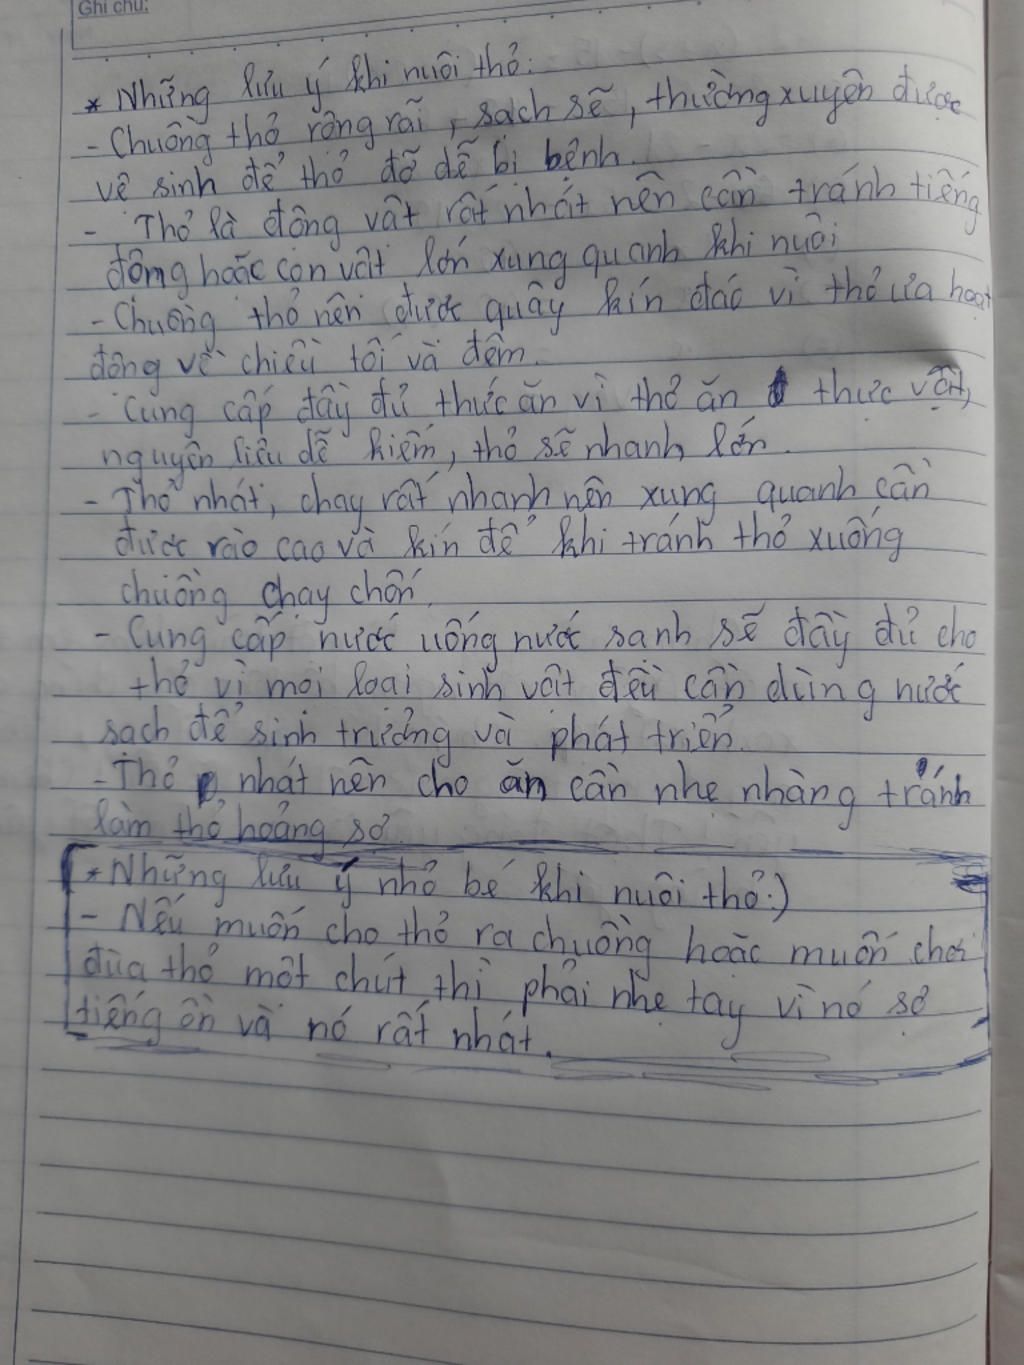 Ghi chú:
* Những lưu ý khi nuôi thỏ:
- Chuồng thỏ rộng rãi, sạch sẽ, thường xuyên được
vệ sinh để thỏ đỡ dễ bị bệnh.
- Thỏ là động vật rất nhát nên cần tránh tiếng
động hoặc con vật lớn xung quanh khi nuôi
- Chuồng thỏ nên được quây kín đáo vì thỏ ưa hoạt
động về chiều tối và đêm.
- Cung cấp đầy đủ thức ăn vì thỏ ăn thực vật,
nguyên liệu dễ kiếm, thỏ sẽ nhanh lớn.
- Thỏ nhát, chạy rất nhanh nên xung quanh cần
được rào cao và kín để khi tránh thỏ xuống
chuồng chạy chốn.
- Cung cấp nước uống nước sanh sẽ đầy đủ cho
thỏ vì mọi loại sinh vật đều cần dùng nước
sạch để sinh trưởng và phát triển.
- Thỏ nhát nên cho ăn cần nhẹ nhàng tránh
làm thỏ hoảng sợ.
* Những lưu ý nhỏ bé khi nuôi thỏ:)
- Nếu muốn cho thỏ ra chuồng hoặc muốn chơi
đùa thỏ một chút thì phải nhẹ tay vì nó sợ
tiếng ồn và nó rất nhát.